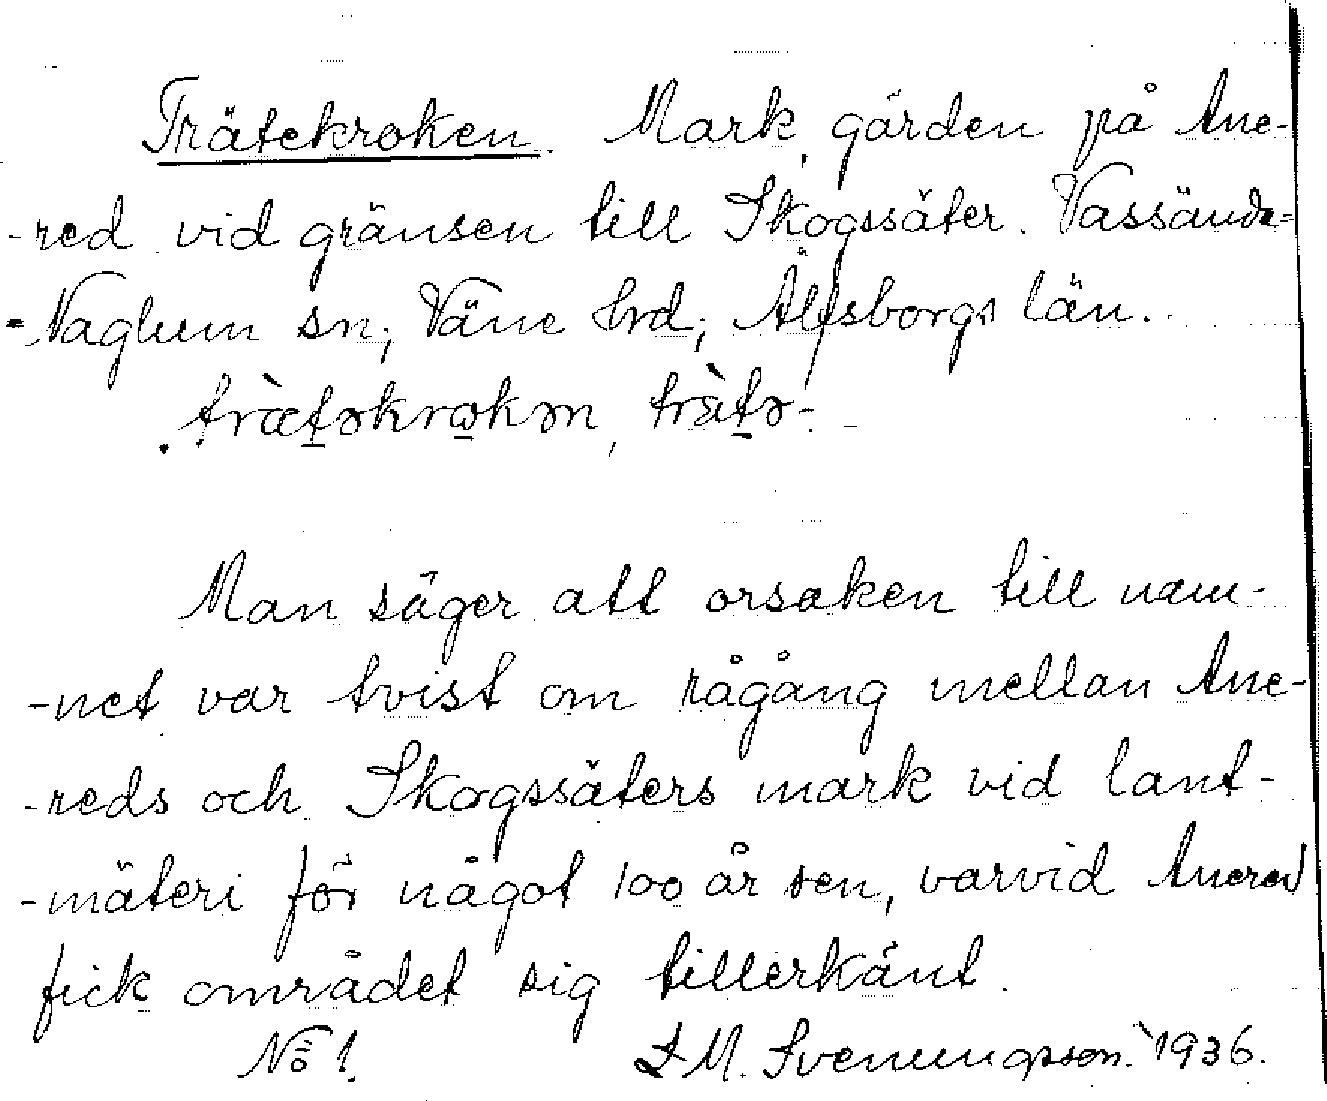 Trätekroken. Mark, gärden på Ane-
-red vid gränsen till Skogssäter. Vassända-
-Naglum sn, Väne hrd, Älfsborgs län.
trät̲əkrω̲kən, tràt̲ə-
Man säger att orsaken till nam-
-net var tvist om rågång mellan Ane-
-reds och Skogssäters mark vid lant-
-mäteri för något 100 år sen, varvid Anered
fick området sig tillerkänt.
No 1. L M. Svenungsson. 1936.